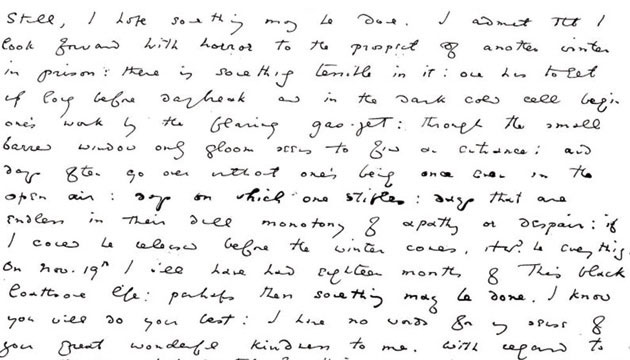 Still, I hope something may be done. I admit that I
look forward with horror to the prospect of another winter
in prison: there is something terrible in it: one has to get
up long before daybreak and in the dark cold cell begin
one's work by the flaring gas-jet: through the small
barred window only gloom seems to find an entrance: and
days often go over without one's being once even in the
open air: days on which one stifles: days that are
endless in their dull monotony of apathy or despair: if
I could be released before the winter comes, it wd. be everything.
On Nov. 19th I will have had eighteen months of this black
loathsome life: perhaps then something may be done. I know
you will do your best: I have no words for my sense of
your great wonderful kindness to me. With regard to